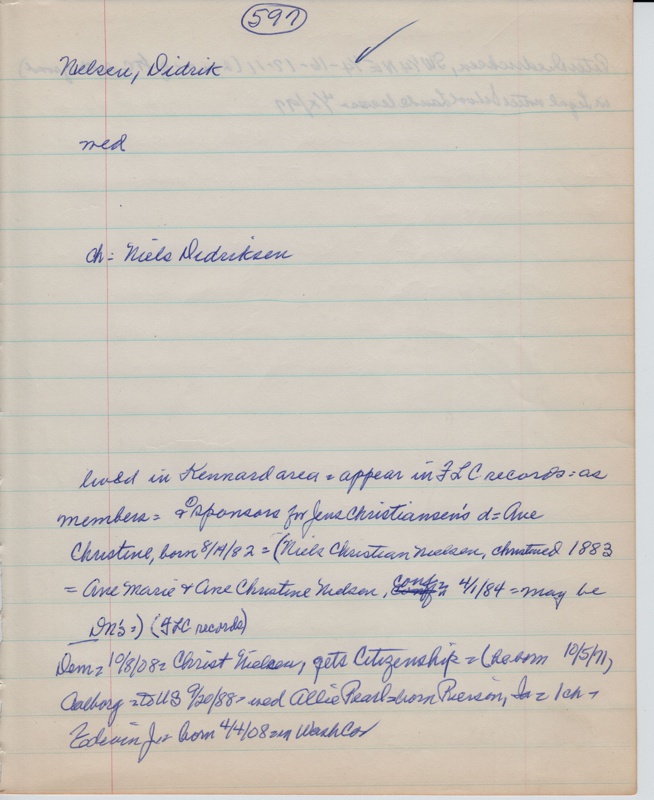 597
Nielsen, Didrik
med
ch = Niels Didriksen
lived in Kennard area = appear in FLC records = as
members = & sponsors for Jens Christiansen's d = Ane
Christine, born 8/14/82 = (Niels Christian Nielsen, christined 1883
= Ane Marie & Ane Christine Nielsen, conf = 4/1/84 = may be
DN's =) (FLC records)
Dem = 10/8/08 = Christ Nielsen, gets Citizenship = (he born 10/5/71,
Aalborg = to US 9/20/88 = wed Allie Pearl = born Pierson, Ia = 1 ch =
Edwin J = born 4/4/08 = in Wash Co)